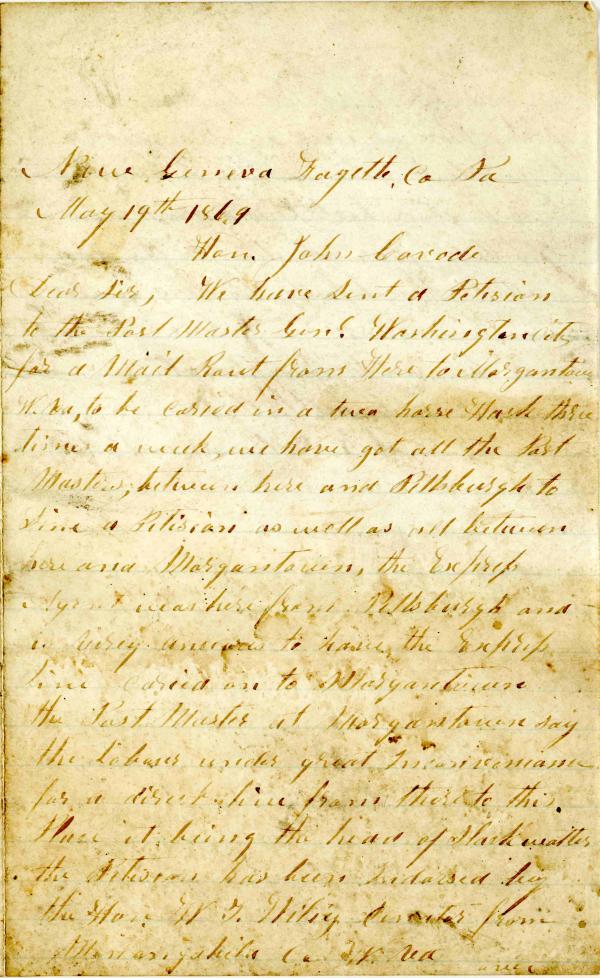 New Geneva Fayette, Co Pa
May 19th 1869
Hon. John Covode
Dear Sir, We have sent a Petision
to the Post Master Genl. Washington City
for a Mail Rout from Here to Morgantown
W. Va, to be Caried in a two horse Hack three
times a week, we have got all the Post
Masters, between here and Pittsburgh to
Sine a Petision as well as all between
here and Morgantown, the Express
Agent was here from Pittsburgh and
is verey anxious to have the Express
Line Caried on to Morgantown
the Post Master at Morgantown say
the Labour under great Inconveniance
for a direct line from there to this
Place it being the head of Slack watter
the Petision has been Indorsed by
the Hon. W. T. Wiley Senator from
Monongahela Co W. Va